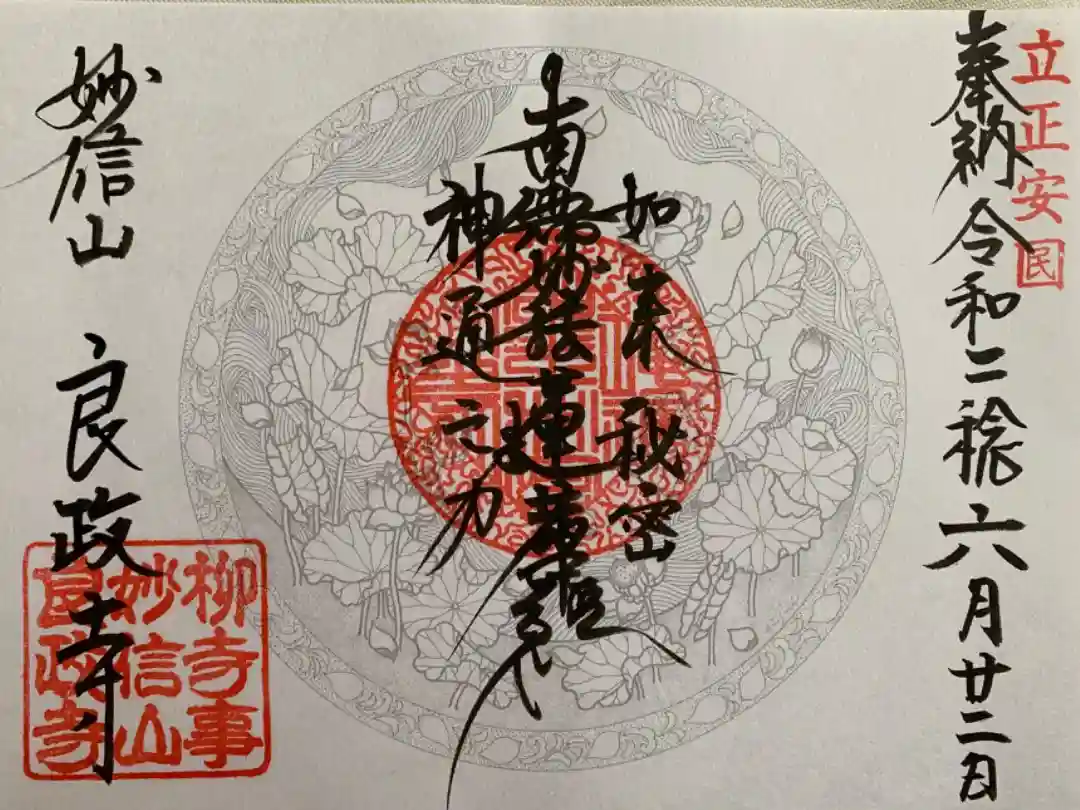 立正安国
奉納 令和二稔六月廿二日
如来秘密
南無妙法蓮華経
神通之力
妙信山 良政寺
柳寺事
妙信山
良政寺